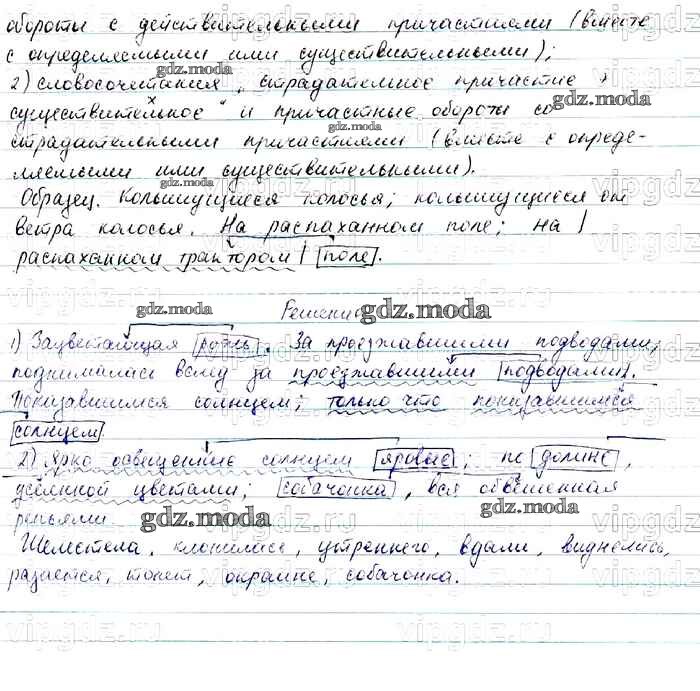 обороты с действительными причастиями (вместе
с определяемыми ими существительными);
2) словосочетания „страдательное причастие +
существительное“ и причастные обороты со
страдательными причастиями (вместе с опреде-
ляемыми ими существительными).
Образец. Колышущиеся колосья; колышущиеся от
ветра колосья. На распаханном поле; на |
распаханном трактором | поле.
Решение
1) Зацветающая рожь. За проезжавшими подводами;
поднималась вслед за проезжавшими подводами.
Показавшимся солнцем; только что показавшимся
солнцем.
2) Ярко освещённые солнцем яровые; по долине,
усеянной цветами; собачонка, вся обвешенная
репьями.
Шелестела, клонилась, утреннего, вдали, виднелись,
раздается, тонет, окраине, собачонка.
gdz.moda
vipgdz.ru